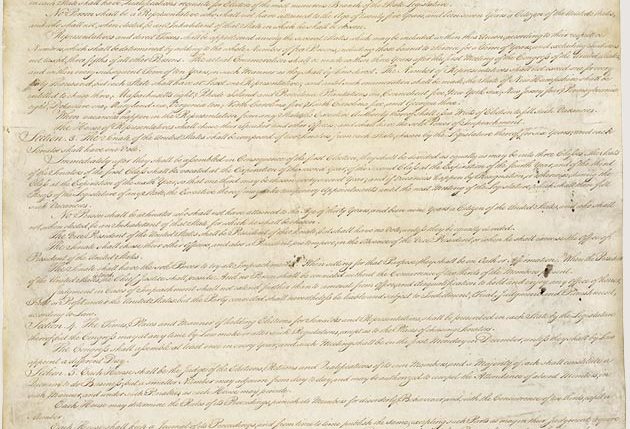 No Person shall be a Representative who shall not have attained to the Age of twenty five Years, and been seven Years a Citizen of the United States,
and who shall not, when elected, be an Inhabitant of that State in which he shall be chosen.
Representatives and direct Taxes shall be apportioned among the several States which may be included within this Union, according to their respective
Numbers, which shall be determined by adding to the whole Number of free Persons, including those bound to Service for a Term of Years, and excluding Indians
not taxed, three fifths of all other Persons. The actual Enumeration shall be made within three Years after the first Meeting of the Congress of the United States,
and within every subsequent Term of ten Years, in such Manner as they shall by Law direct. The Number of Representatives shall not exceed one for every
thirty Thousand, but each State shall have at Least one Representative; and until such enumeration shall be made, the State of New Hampshire shall be
entitled to chuse three, Massachusetts eight, Rhode Island and Providence Plantations one, Connecticut five, New York six, New Jersey four, Pennsylvania
eight, Delaware one, Maryland six, Virginia ten, North Carolina five, South Carolina five, and Georgia three.
When vacancies happen in the Representation from any State, the Executive Authority thereof shall issue Writs of Election to fill such Vacancies.
The House of Representatives shall chuse their Speaker and other Officers;
Section. 3. The Senate of the United States shall be composed of two Senators from each State, chosen by the Legislature thereof, for six Years; and each
Senator shall have one Vote.
Immediately after they shall be assembled in Consequence of the first Election, they shall be divided as equally as may be into three Classes. The Seats
of the Senators of the first Class shall be vacated at the Expiration of the second Year, of the second Class at the Expiration of the fourth Year, and of the third
Class at the Expiration of the sixth Year, so that one third may be chosen every second Year; and if Vacancies happen by Resignation, or otherwise, during the
Recess of the Legislature of any State, the Executive thereof may make temporary Appointments until the next Meeting of the Legislature, which shall then fill
such Vacancies.
No Person shall be a Senator who shall not have attained to the Age of thirty Years, and been nine Years a Citizen of the United States, and who shall
not, when elected, be an Inhabitant of that State for which he shall be chosen.
The Vice President of the United States shall be President of the Senate, but shall have no Vote, unless they be equally divided.
The Senate shall chuse their other Officers, and also a President pro tempore, in the Absence of the Vice President, or when he shall exercise the Office of
President of the United States.
The Senate shall have the sole Power to try all Impeachments. When sitting for that Purpose, they shall be on Oath or Affirmation. When the President
of the United States is tried, the Chief Justice shall preside: And no Person shall be convicted without the Concurrence of two thirds of the Members present.
Judgment in Cases of Impeachment shall not extend further than to removal from Office, and disqualification to hold and enjoy any Office of honor,
Trust or Profit under the United States: but the Party convicted shall nevertheless be liable and subject to Indictment, Trial, Judgment and Punishment,
according to Law.
Section. 4. The Times, Places and Manner of holding Elections for Senators and Representatives, shall be prescribed in each State by the Legislature
thereof; but the Congress may at any time by Law make or alter such Regulations, except as to the Places of chusing Senators.
The Congress shall assemble at least once in every Year, and such Meeting shall be on the first Monday in December, unless they shall by Law
appoint a different Day.
Section. 5. Each House shall be the Judge of the Elections, Returns and Qualifications of its own Members, and a Majority of each shall constitute a
Quorum to do Business; but a smaller Number may adjourn from day to day, and may be authorized to compel the Attendance of absent Members, in
such Manner, and under such Penalties as each House may provide.
Each House may determine the Rules of its Proceedings, punish its Members for disorderly Behaviour, and, with the Concurrence of two thirds, expel a
Member.
Each House shall keep a Journal of its Proceedings, and from time to time publish the same, excepting such Parts as may in their Judgment require